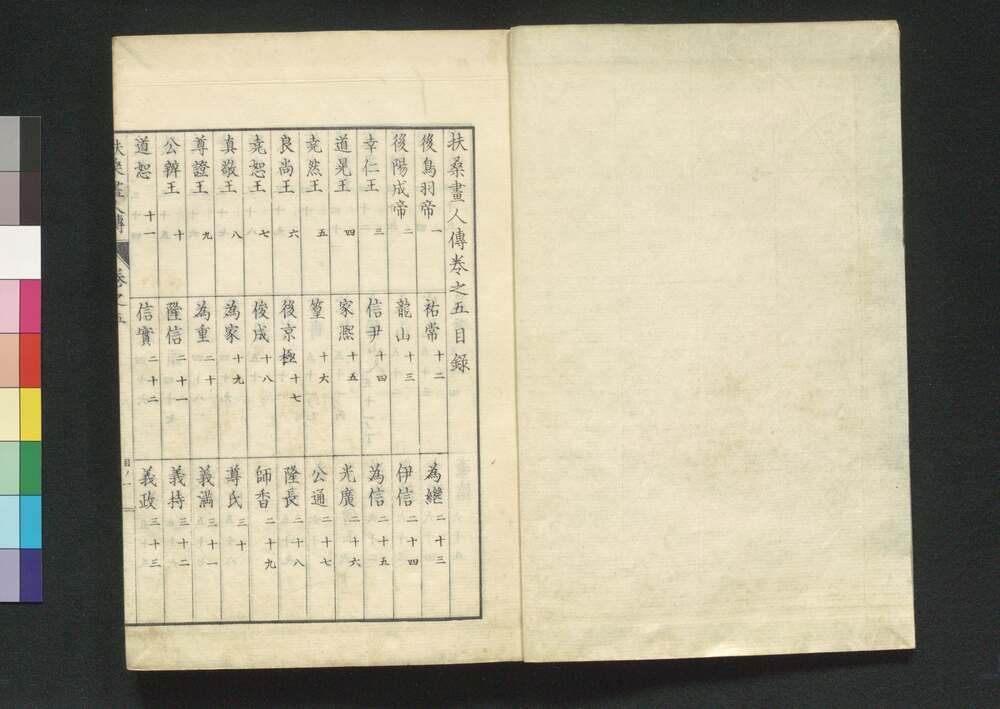 扶桑畫人傳卷之五目録
後鳥羽帝 一
後陽成帝 二
幸仁王 三
道晃王 四
堯然王 五
良尚王 六
堯恕王 七
真敬王 八
尊證王 九
公辨王 十
道恕 十一
祐常 十二
龍山 十三
信尹 十四
家熈 十五
篁 十六
後京極 十七
俊成 十八
為家 十九
為重 二十
隆信 二十一
信實 二十二
為継 二十三
伊信 二十四
為信 二十五
光廣 二十六
公通 二十七
隆長 二十八
師香 二十九
尊氏 三十
義満 三十一
義持 三十二
義政 三十三
扶桑畫人傳 卷之五 目ノ一